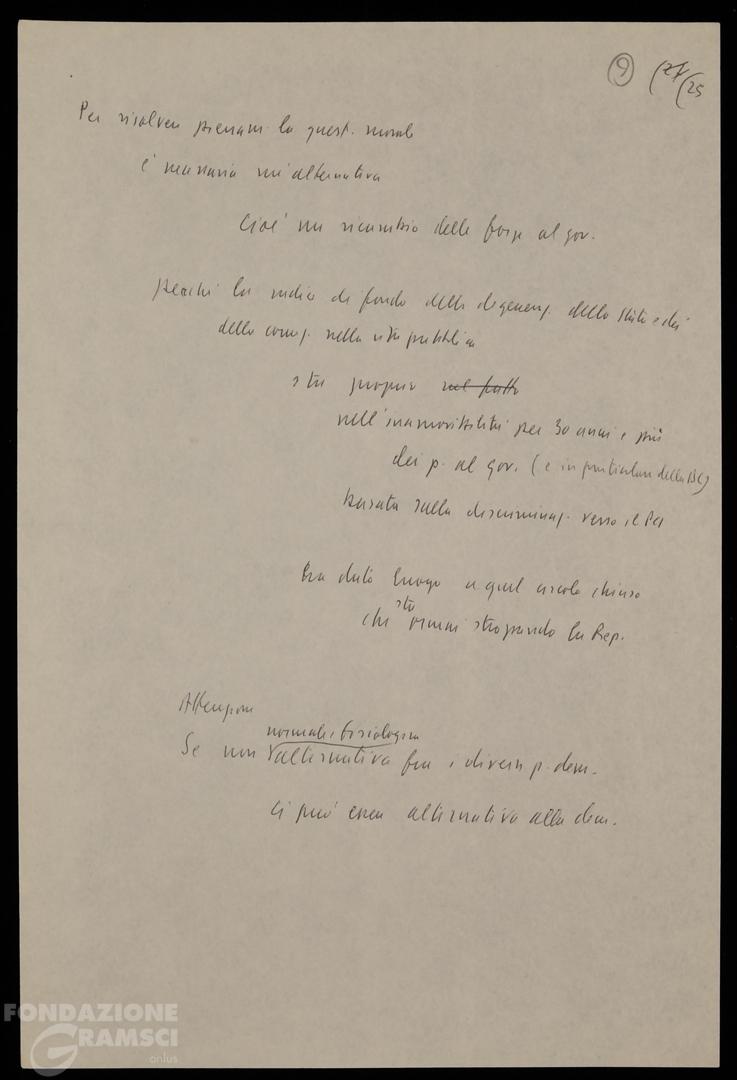 9 (24/(25
Per risolvere pienam. la quest. morale
è necessaria un'alternativa
Cioè un ricambio delle forze al gov.
perché la radice di fondo della degeneraz. dello Stato e di
della corruz. nella vita pubblica
sta proprio nel fatto
nell'inamovibilità per 30 anni e più
dei p. al gov. (e in particolare della DC)
basata sulla discriminaz. verso il PCI
ha dato luogo a quel circolo chiuso
sta
che ormai strozzando la Rep.
Attenzione
normale, fisiologica
Se non alternativa fra i diversi p. dem.
ci può essere alternativa alla dem.
FONDAZIONE
GRAMSCI
onlus